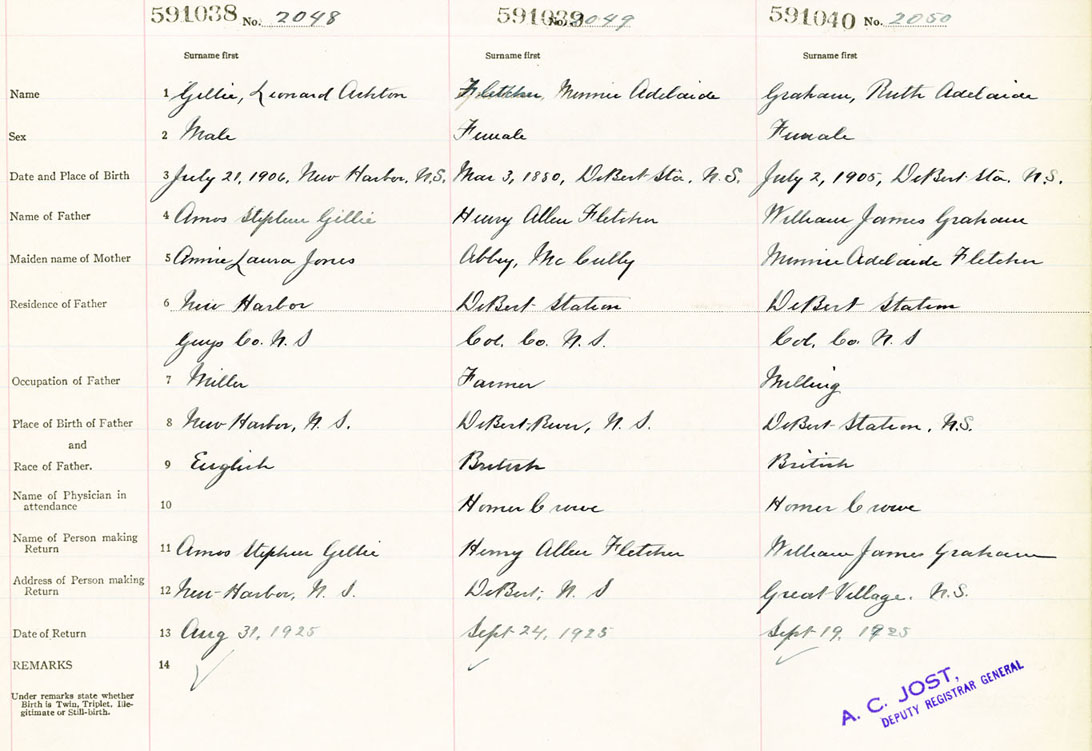 591038 No. 2048 591039 No. 2049 591040 No. 2050
Surname first Surname first Surname first
Name 1 Gillie, Leonard Ashton Fletcher, Minnie Adelaide Graham, Ruth Adelaide
Sex 2 Male Female Female
Date and Place of Birth 3 July 21, 1906, New Harbor, N.S. Mar 3, 1880, DeBert Sta. N.S. July 2, 1905, DeBert Sta. N.S.
Name of Father 4 Amos Stephen Gillie Henry Allen Fletcher William James Graham
Maiden name of Mother 5 Annie Laura Jones Abbey, McCully Minnie Adelaide Fletcher
Residence of Father 6 New Harbor DeBert Station DeBert Station
Guys Co. N.S Col. Co. N.S. Col. Co. N.S
Occupation of Father 7 Miller Farmer Milling
Place of Birth of Father 8 New Harbor, N.S. DeBert River, N.S. DeBert Station, N.S.
and
Race of Father. 9 English British British
Name of Physician in 10 Homer Crowe Homer Crowe
attendance
Name of Person making 11 Amos Stephen Gillie Henry Allen Fletcher William James Graham
Return
Address of Person making 12 New Harbor, N.S. DeBert, N.S Great Village. N.S.
Return
Date of Return 13 Aug 31, 1925 Sept 24, 1925 Sept 19, 1925
REMARKS 14
Under remarks state whether
Birth is Twin, Triplet, Ille-
gitimate or Still-birth.
A. C. JOST,
DEPUTY REGISTRAR GENERAL